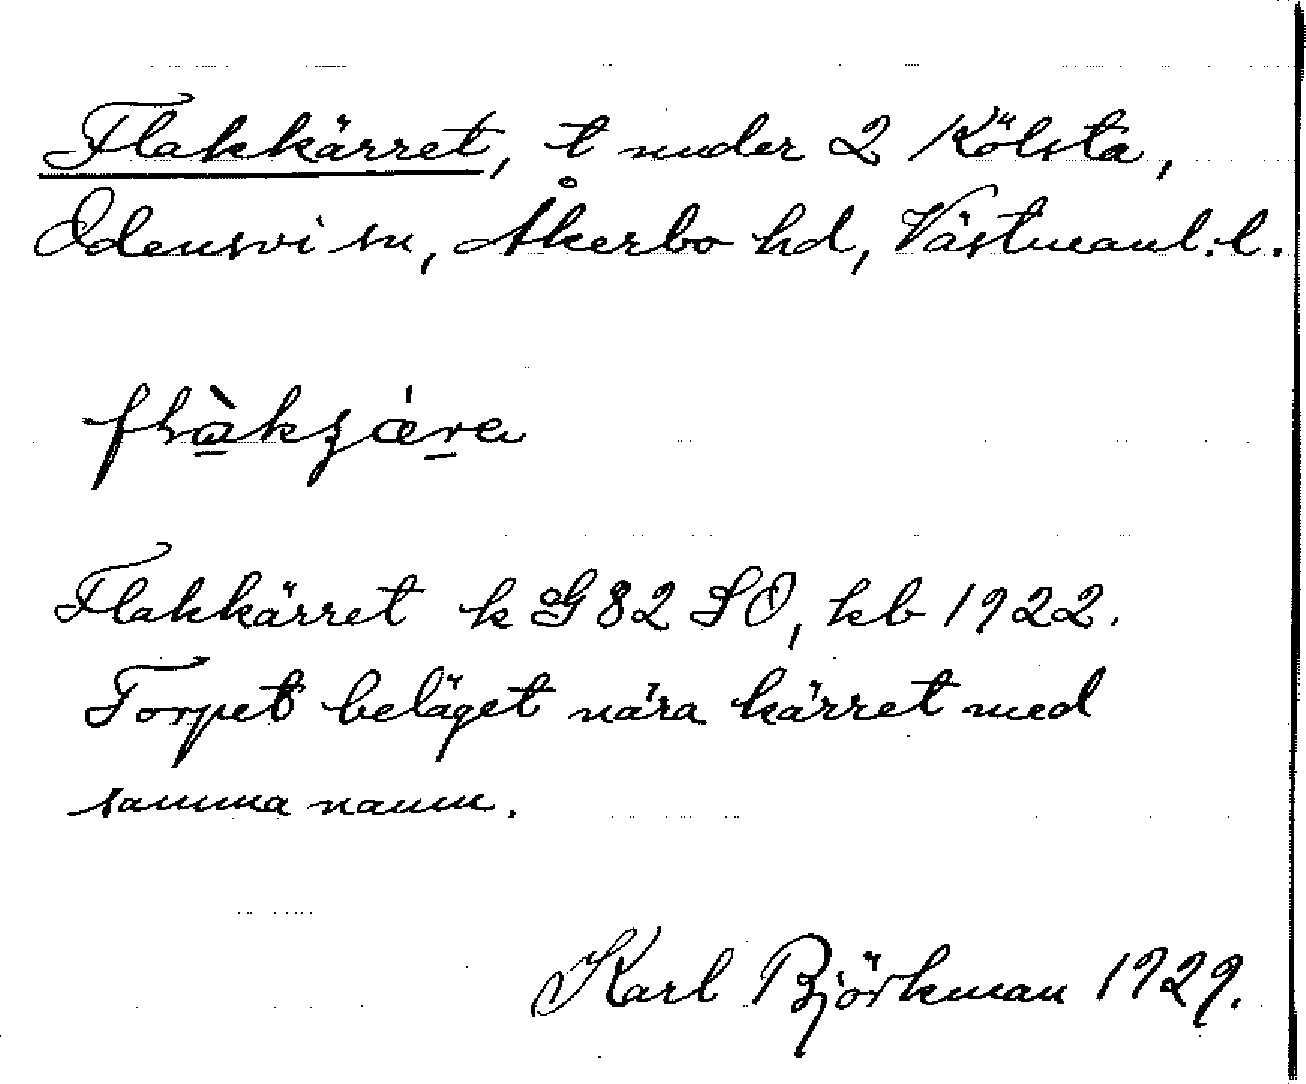 Flakkärret, t under 2 Kölsta,
Odensvi sn, Åkerbo hd, Västmanl:l.
Flakkärret k G82 SO, kb 1922.
Torpet beläget nära kärret med
samma namn.
Karl Björkman 1929.